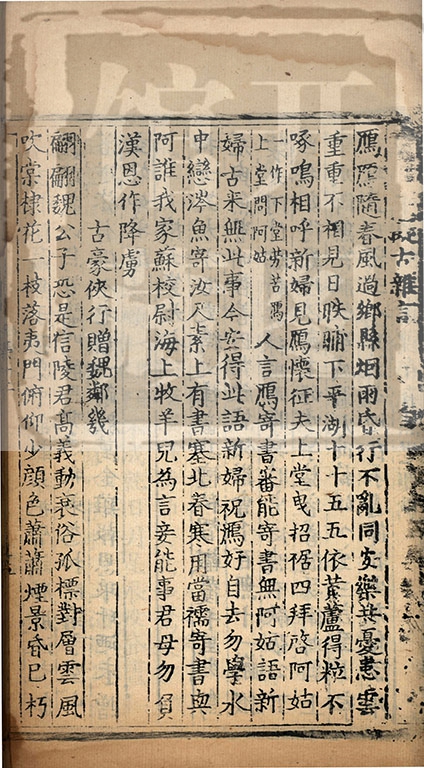 擬古雜言
鴈隨春風過鄉縣烟雨昏行不亂同安樂共憂患雲
重重不相見日昳晡下平湖十十五五依黃蘆得粒不
啄鳴相呼新婦見鴈懷征夫上堂曳招裾四拜啓阿姑
一作下堂苦為
上堂問阿姑
人言鴈寄書審能寄書無阿姑語新
婦古来無此事今安得此語新婦祝鴈好自去勿學水
中戀渌魚寄汝人素上有書塞北春寒用當襦寄書與
阿誰我家蘇校尉海上牧羊兒為言妾能事君母勿負
漢恩作降虜
古豪俠行贈魏鄰幾
翩翩魏公子恐是信陵君髙義動衰俗孤標對層雲風
吹棠棣花一枝落夷門俯仰少顔色蕭蕭煙景昏已朽